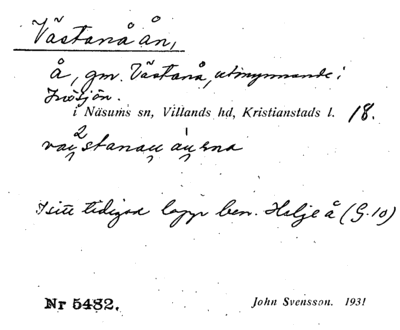 Västanå ån,
å, gm. Västanå, utmynnande i
Ivösjön.
i Näsums sn, Villands hd, Kristianstads l. 18.
I sitt tidigare lopp ben. Holje å (G.10)
Nr 5482. John Svensson. 1931